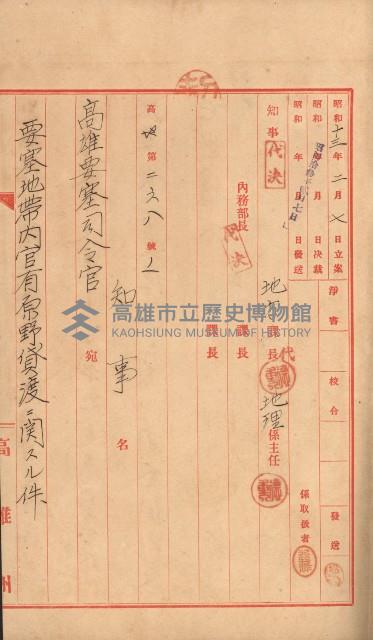 昭和十三年二月七日立案
昭和 年 月 日決裁
昭和 年 月 日發送
淨書
校合
發送
係取扱者
知事 代決
內務部長 代決
地方課長 代
課長
課長
地理係主任
高地第二六八號ノ
知事名
高雄要塞司令官 宛
要塞地帶內官有原野貸渡ニ関スル件
高雄州
高雄市立歷史博物館
KAOHSIUNG MUSEUM OF HISTORY